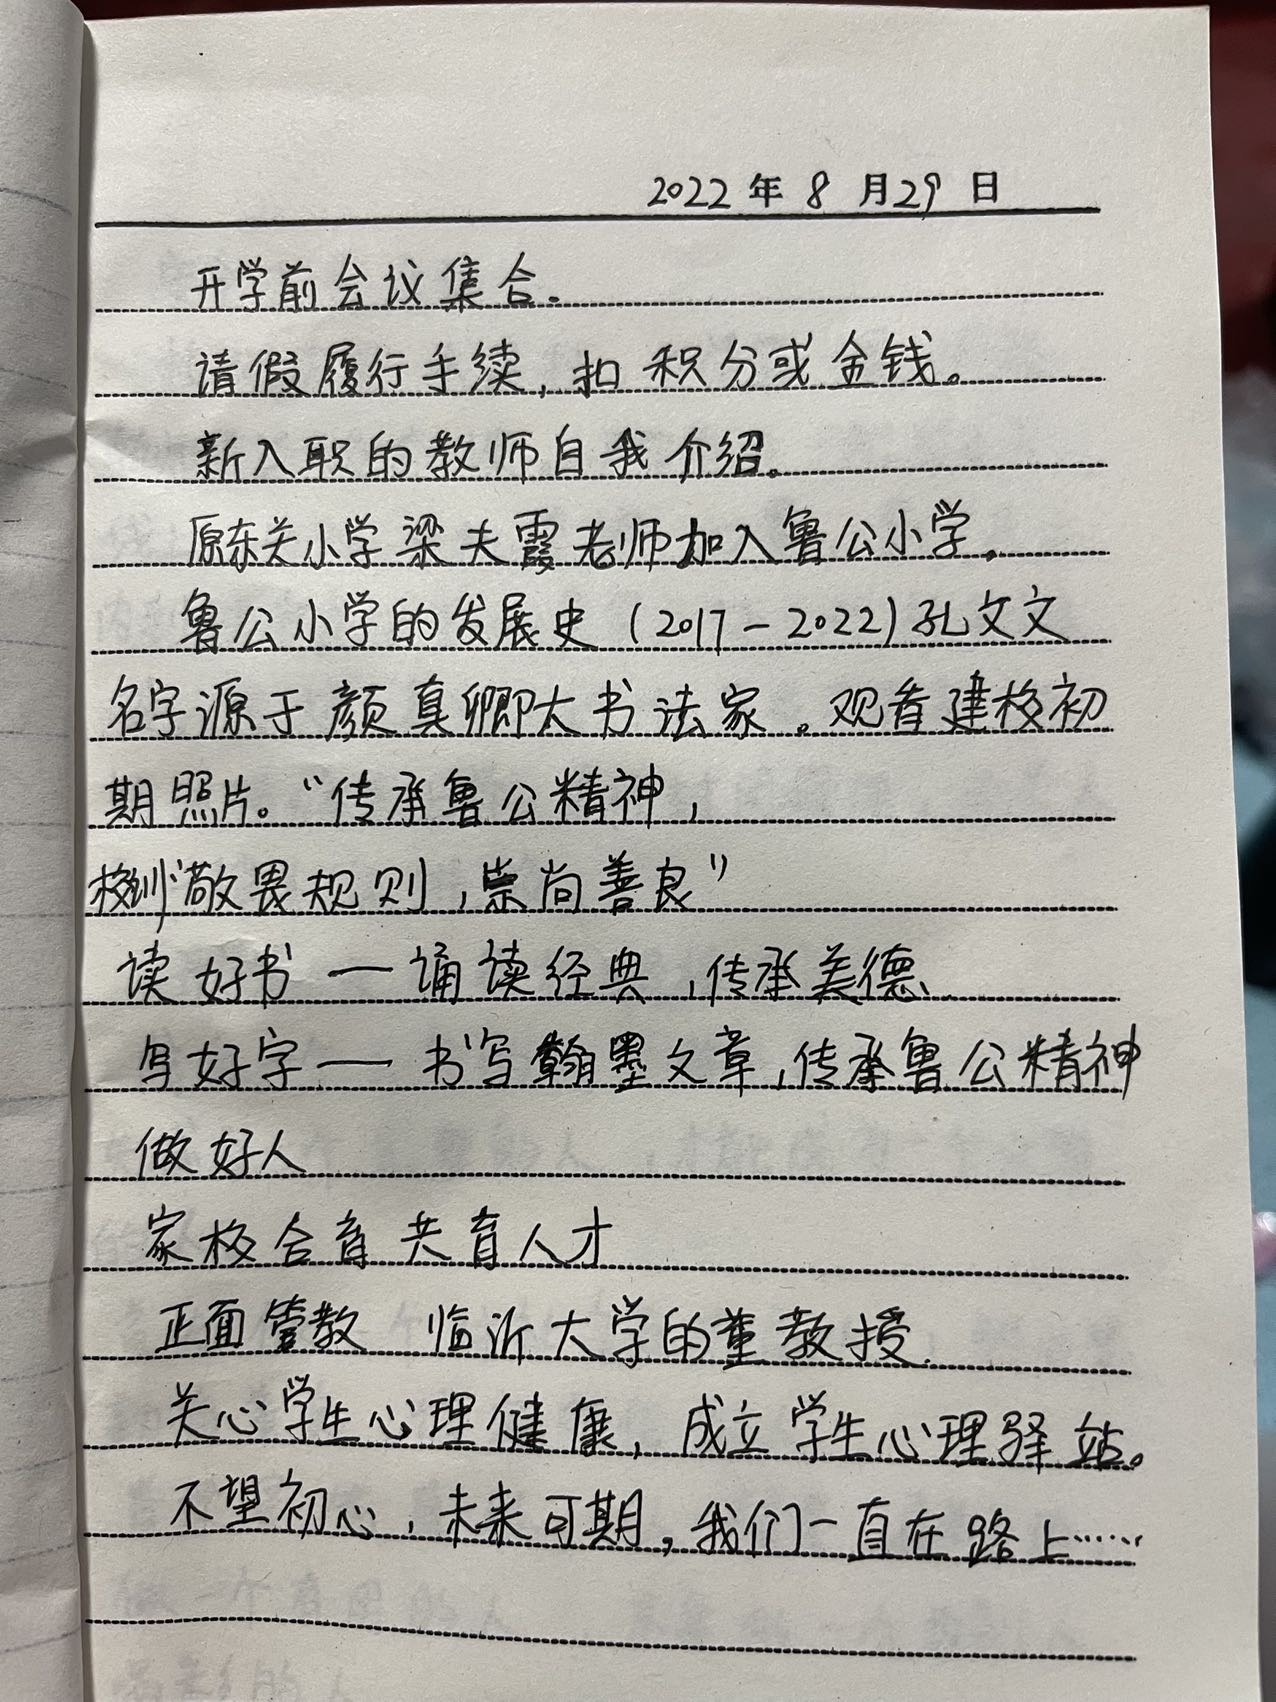 2022年8月29日
开学前会议集合。
请假履行手续，扣积分或金钱。
新入职的教师自我介绍。
原东关小学梁夫霞老师加入鲁公小学。
鲁公小学的发展史（2017－2022）孔文文
名字源于颜真卿大书法家。观看建校初
期照片。“传承鲁公精神，
校训“敬畏规则，崇尚善良”
读好书——诵读经典，传承美德、
写好字——书写翰墨文章，传承鲁公精神
做好人
家校合育 共育人才
正面管教 临沂大学的董教授.
关心学生心理健康，成立学生心理驿站。
不望初心，未来可期，我们一直在路上……